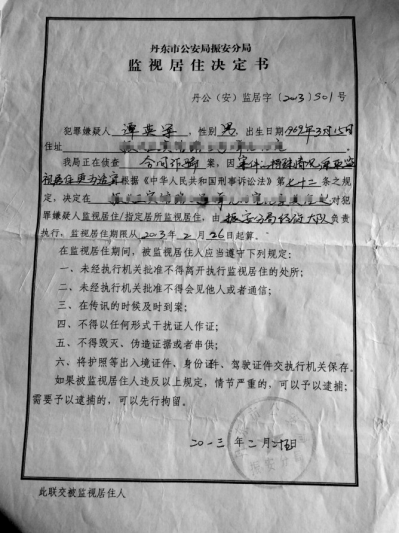 丹东市公安局振安分局
监视居住决定书
丹公（安）监居字〔2013〕501号
犯罪嫌疑人 谭 ，性别 男 ，出生日期 1969年3月15日
住址
我局正在侦查 合同诈骗 案，因 案件 特殊情况 监
视居住更为适宜 根据《中华人民共和国刑事诉讼法》第七十二条之规
定，决定在 对犯
罪嫌疑人监视居住/指定居所监视居住，由 振安分局经侦大队 负责
执行，监视居住期限从 2013年2月26日起算。
在监视居住期间，被监视居住人应当遵守下列规定：
一、未经执行机关批准不得离开执行监视居住的处所；
二、未经执行机关批准不得会见他人或者通信；
三、在传讯的时候及时到案；
四、不得以任何形式干扰证人作证；
五、不得毁灭、伪造证据或者串供；
六、将护照等出入境证件、身份证件、驾驶证件交执行机关保存。
如果被监视居住人违反以上规定，情节严重的，可以予以逮捕；
需要予以逮捕的，可以先行拘留。
二〇一三年二月 日
此联交被监视居住人